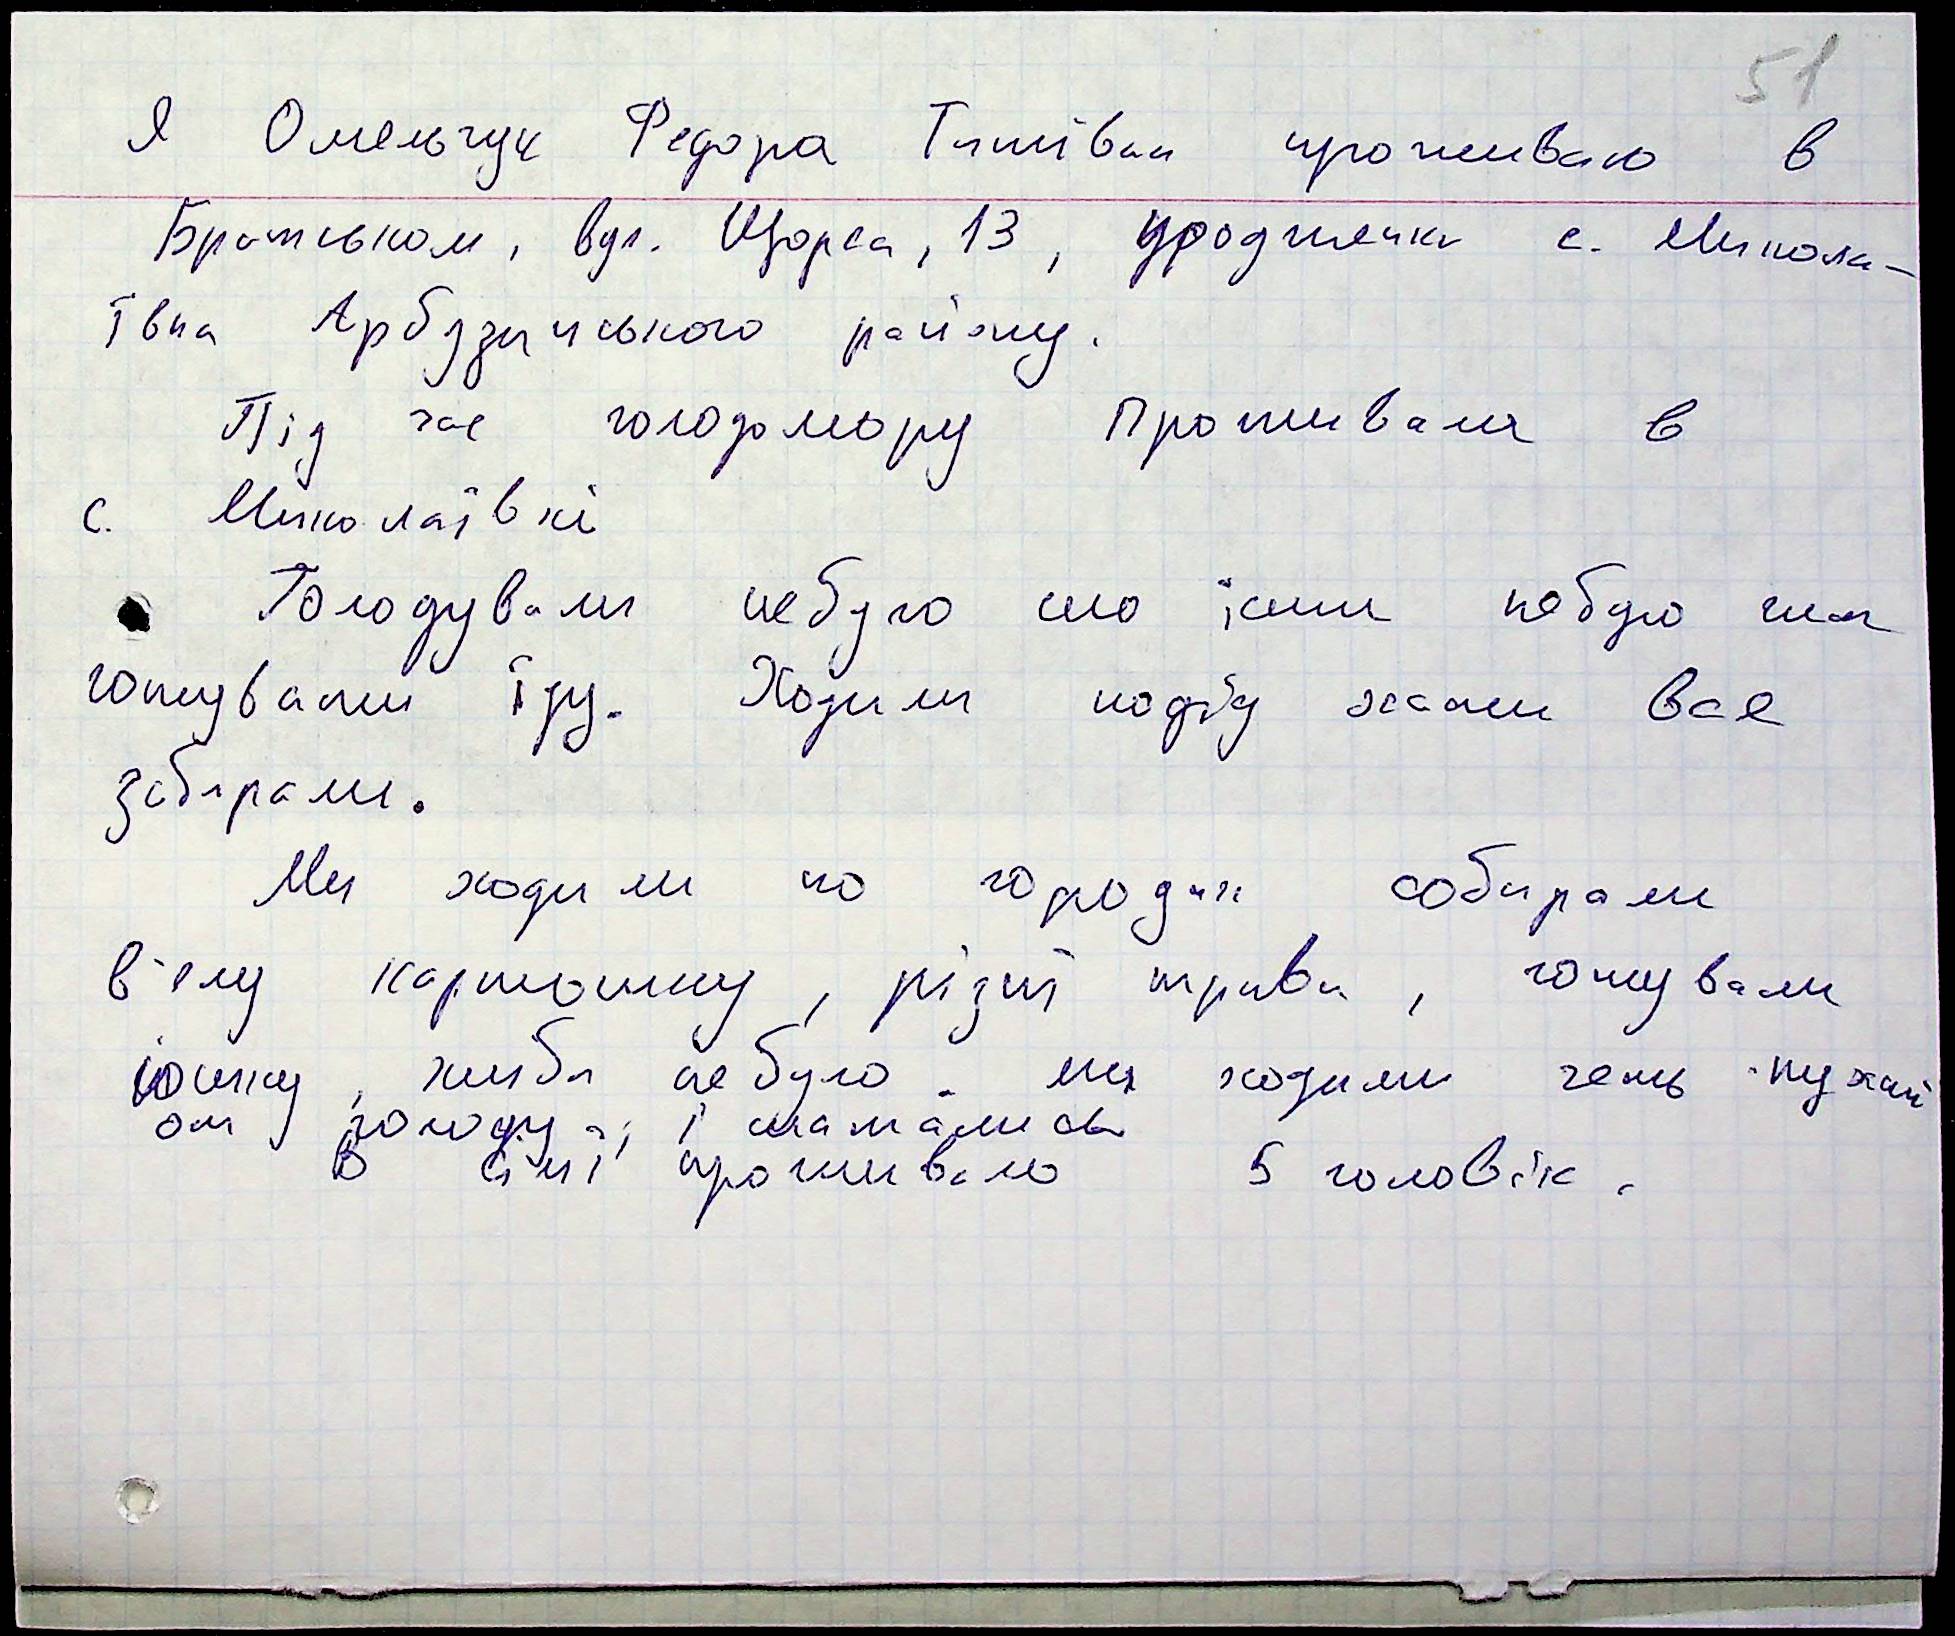 51
Я Омельчук Федора Титівна проживаю в
Братськом, вул. Щорса, 13, уродженка с. Микола-
ївка Арбузинського району.
Під час голодомору проживала в
с. Миколаївкі
Голодували небуло шо їсти небуло чим
готувати їду. Ходили подву хати все
забирали.
Ми ходили по городах собирали
в'ялу картошку, різні трави, готували
юшку, хліба небуло. ми ходили чуть пухлі
от голоду, і шатались
В сімї проживало 5 головік.